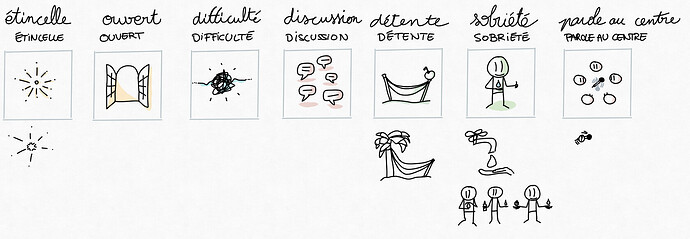 étincelle ouvert difficulté discussion détente sobriété parole au centre
ÉTINCELLE OUVERT DIFFICULTÉ DISCUSSION DÉTENTE SOBRIÉTÉ PAROLE AU CENTRE